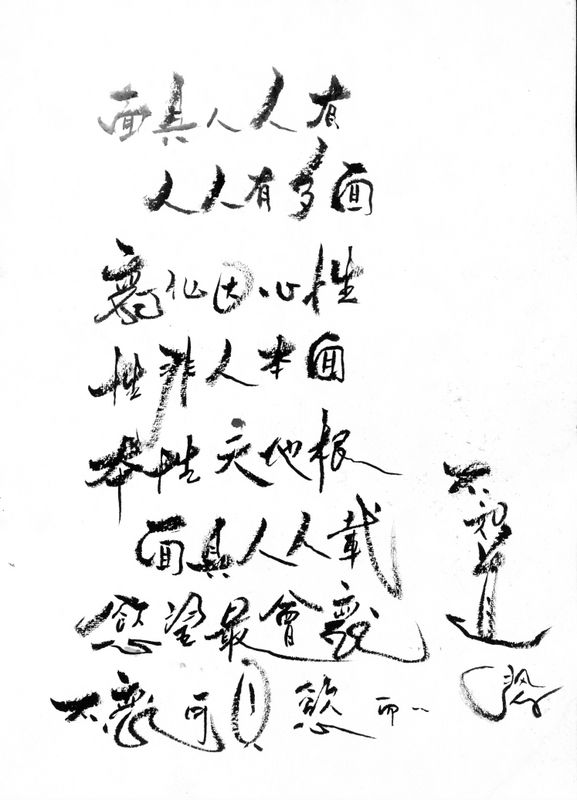 面具人人有
人人有多面
變化因心性
性非人本面
本性天地根
面具人人載
慾望最會變
不變可見慾而